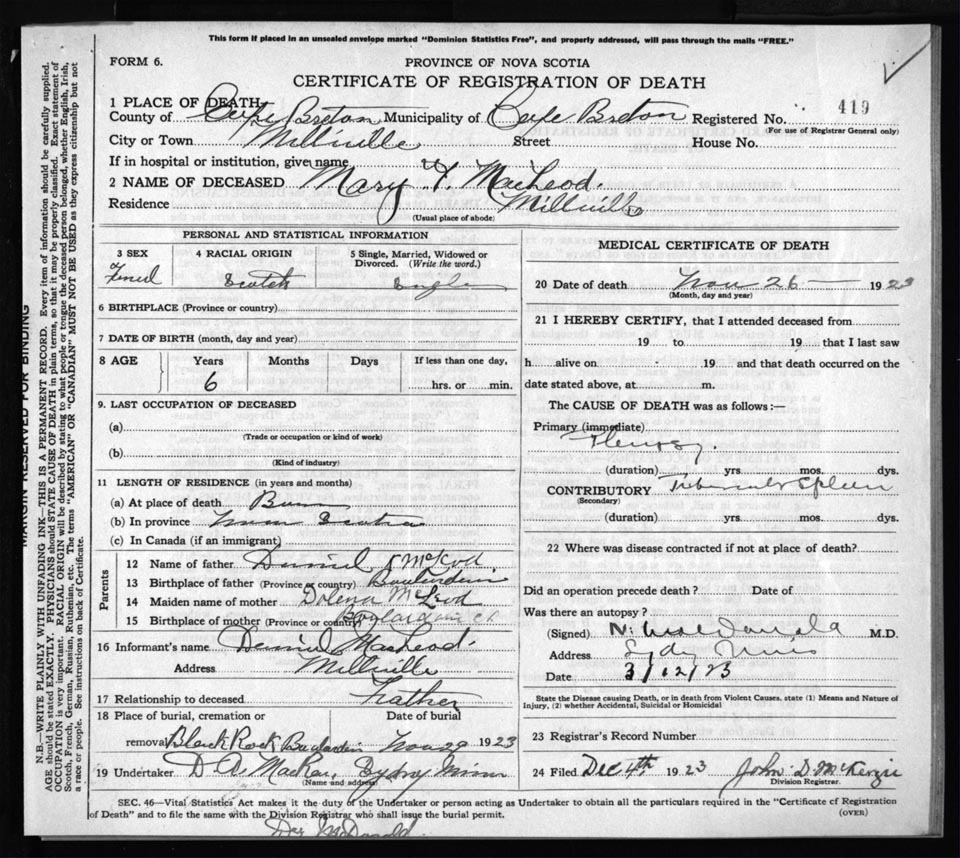 This form if placed in an unsealed envelope marked "Dominion Statistics Free", and properly addressed, will pass through the mails "FREE."
FORM 6.
PROVINCE OF NOVA SCOTIA
CERTIFICATE OF REGISTRATION OF DEATH
1 PLACE OF DEATH
County of Cape Breton Municipality of Cape Breton Registered No. 419
(For use of Registrar General only)
City or Town Millville Street House No.
If in hospital or institution, give name
2 NAME OF DECEASED Mary MacLeod.
Residence Millville
(Usual place of abode)
PERSONAL AND STATISTICAL INFORMATION
3 SEX 4 RACIAL ORIGIN 5 Single, Married, Widowed or Divorced. (Write the word.)
Scotch Single
6 BIRTHPLACE (Province or country)
7 DATE OF BIRTH (month, day and year)
8 AGE Years Months Days If less than one day,
6 hrs. or min.
9. LAST OCCUPATION OF DECEASED
(a)
(Trade or occupation or kind of work)
(b)
(Kind of industry)
11 LENGTH OF RESIDENCE (in years and months)
(a) At place of death
(b) In province Nova Scotia
(c) In Canada (if an immigrant)
Parents
12 Name of father Daniel McLeod.
13 Birthplace of father (Province or country) Boulardarie
14 Maiden name of mother Dolena McLeod
15 Birthplace of mother (Province or country) Boulardarie CB
16 Informant's name Daniel MacLeod.
Address Millville
17 Relationship to deceased Father
18 Place of burial, cremation or Date of burial
removal Black Rock Boulardarie Nov 29 1923
19 Undertaker D. A. MacRae, Sydney Mines
(Name and address)
MEDICAL CERTIFICATE OF DEATH
20 Date of death Nov 26 — 1923
(Month, day and year)
21 I HEREBY CERTIFY, that I attended deceased from
19 to 19 that I last saw
h alive on 19 and that death occurred on the
date stated above, at m.
The CAUSE OF DEATH was as follows:—
Primary (immediate)
Pleurisy
(duration) yrs mos. dys.
CONTRIBUTORY Tubercular Spleen
(Secondary)
(duration) yrs. mos. dys.
22 Where was disease contracted if not at place of death?
Did an operation precede death? Date of
Was there an autopsy?
(Signed) M.D.
Address Sydney Mines
Date 3/12/23
State the Disease causing Death, or in death from Violent Causes, state (1) Means and Nature of
Injury, (2) whether Accidental, Suicidal or Homicidal
23 Registrar's Record Number
24 Filed Dec 4th 1923 John D. McKenzie
Division Registrar.
SEC. 46—Vital Statistics Act makes it the duty of the Undertaker or person acting as Undertaker to obtain all the particulars required in the "Certificate of Registration
of Death" and to file the same with the Division Registrar who shall issue the burial permit. (OVER)
MARGIN RESERVED FOR BINDING
N.B.—WRITE PLAINLY WITH UNFADING INK—THIS IS A PERMANENT RECORD. Every item of information should be carefully supplied.
AGE should be stated EXACTLY. PHYSICIANS should STATE CAUSE OF DEATH in plain terms, so that it may be properly classified. Exact statement of
OCCUPATION is very important. RACIAL ORIGIN will be described by stating to what people or tongue the deceased person belonged, whether English, Irish,
Scotch, French, German, Russian, Ruthenian, etc. The terms "AMERICAN" OR "CANADIAN" MUST NOT BE USED as they express citizenship but not
a race or people. See instructions on back of Certificate.